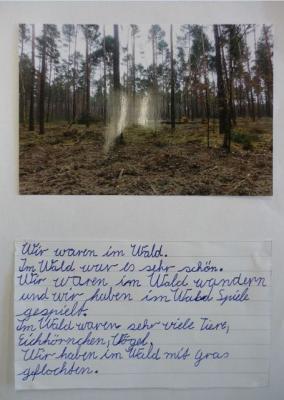 Wir waren im Wald.
Im Wald war es sehr schön.
Wir waren im Wald wandern
und wir haben im Wald Spiele
gespielt.
Im Wald waren sehr viele Tiere,
Eichhörnchen, Vögel.
Wir haben im Wald mit Gras
geflochten.